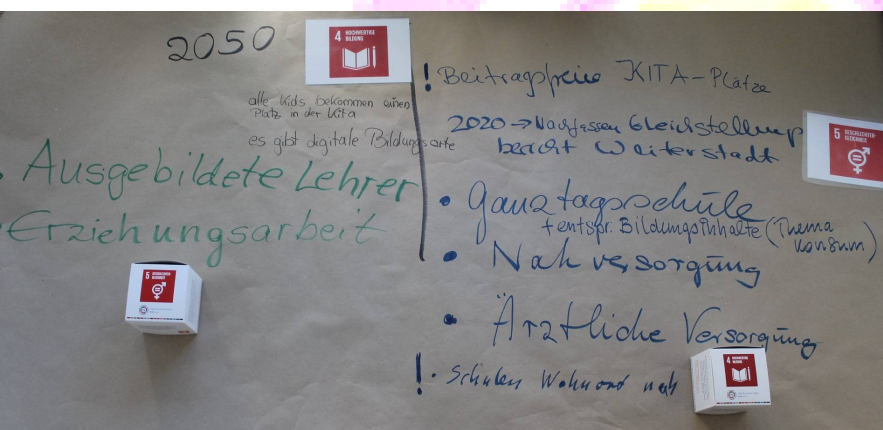 2050
4 HOCHWERTIGE
BILDUNG
alle Kids bekommen einen
Platz in der Kita
es gibt digitale Bildungsorte
Ausgebildete Lehrer
Erziehungsarbeit
5 GESCHLECHTER-
GLEICHHEIT
! Beitragsfreie KITA-Plätze
2020 → Nachlesen Gleichstellung
bericht Weiterstadt
5 GESCHLECHTER-
GLEICHHEIT
• Ganztagsschule
+ entspr. Bildungsinhalte (Thema
Konsum)
• Nahversorgung
• Ärztliche Versorgung
! • Schulen Wohnort nah
4 HOCHWERTIGE
BILDUNG